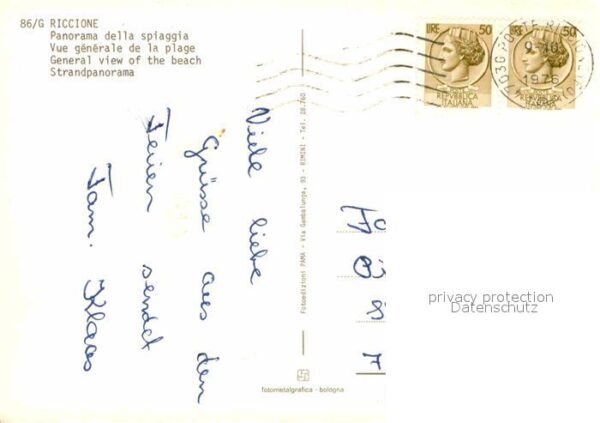 86/G RICCIONE
Panorama della spiaggia
Vue générale de la plage
General view of the beach
Strandpanorama
LIRE 50
REPVBBLICA
ITALIANA
50
REPVBBLICA
ITALIANA
POSTE
9-10
1976
Viele liebe
Grüsse aus den
Ferien sendet
Fam. Klaas
Fotoedizioni PAMA - Via Gambalunga, 93 - RIMINI - Tel. 28.760
privacy protection
Datenschutz
fotometalgrafica - bologna